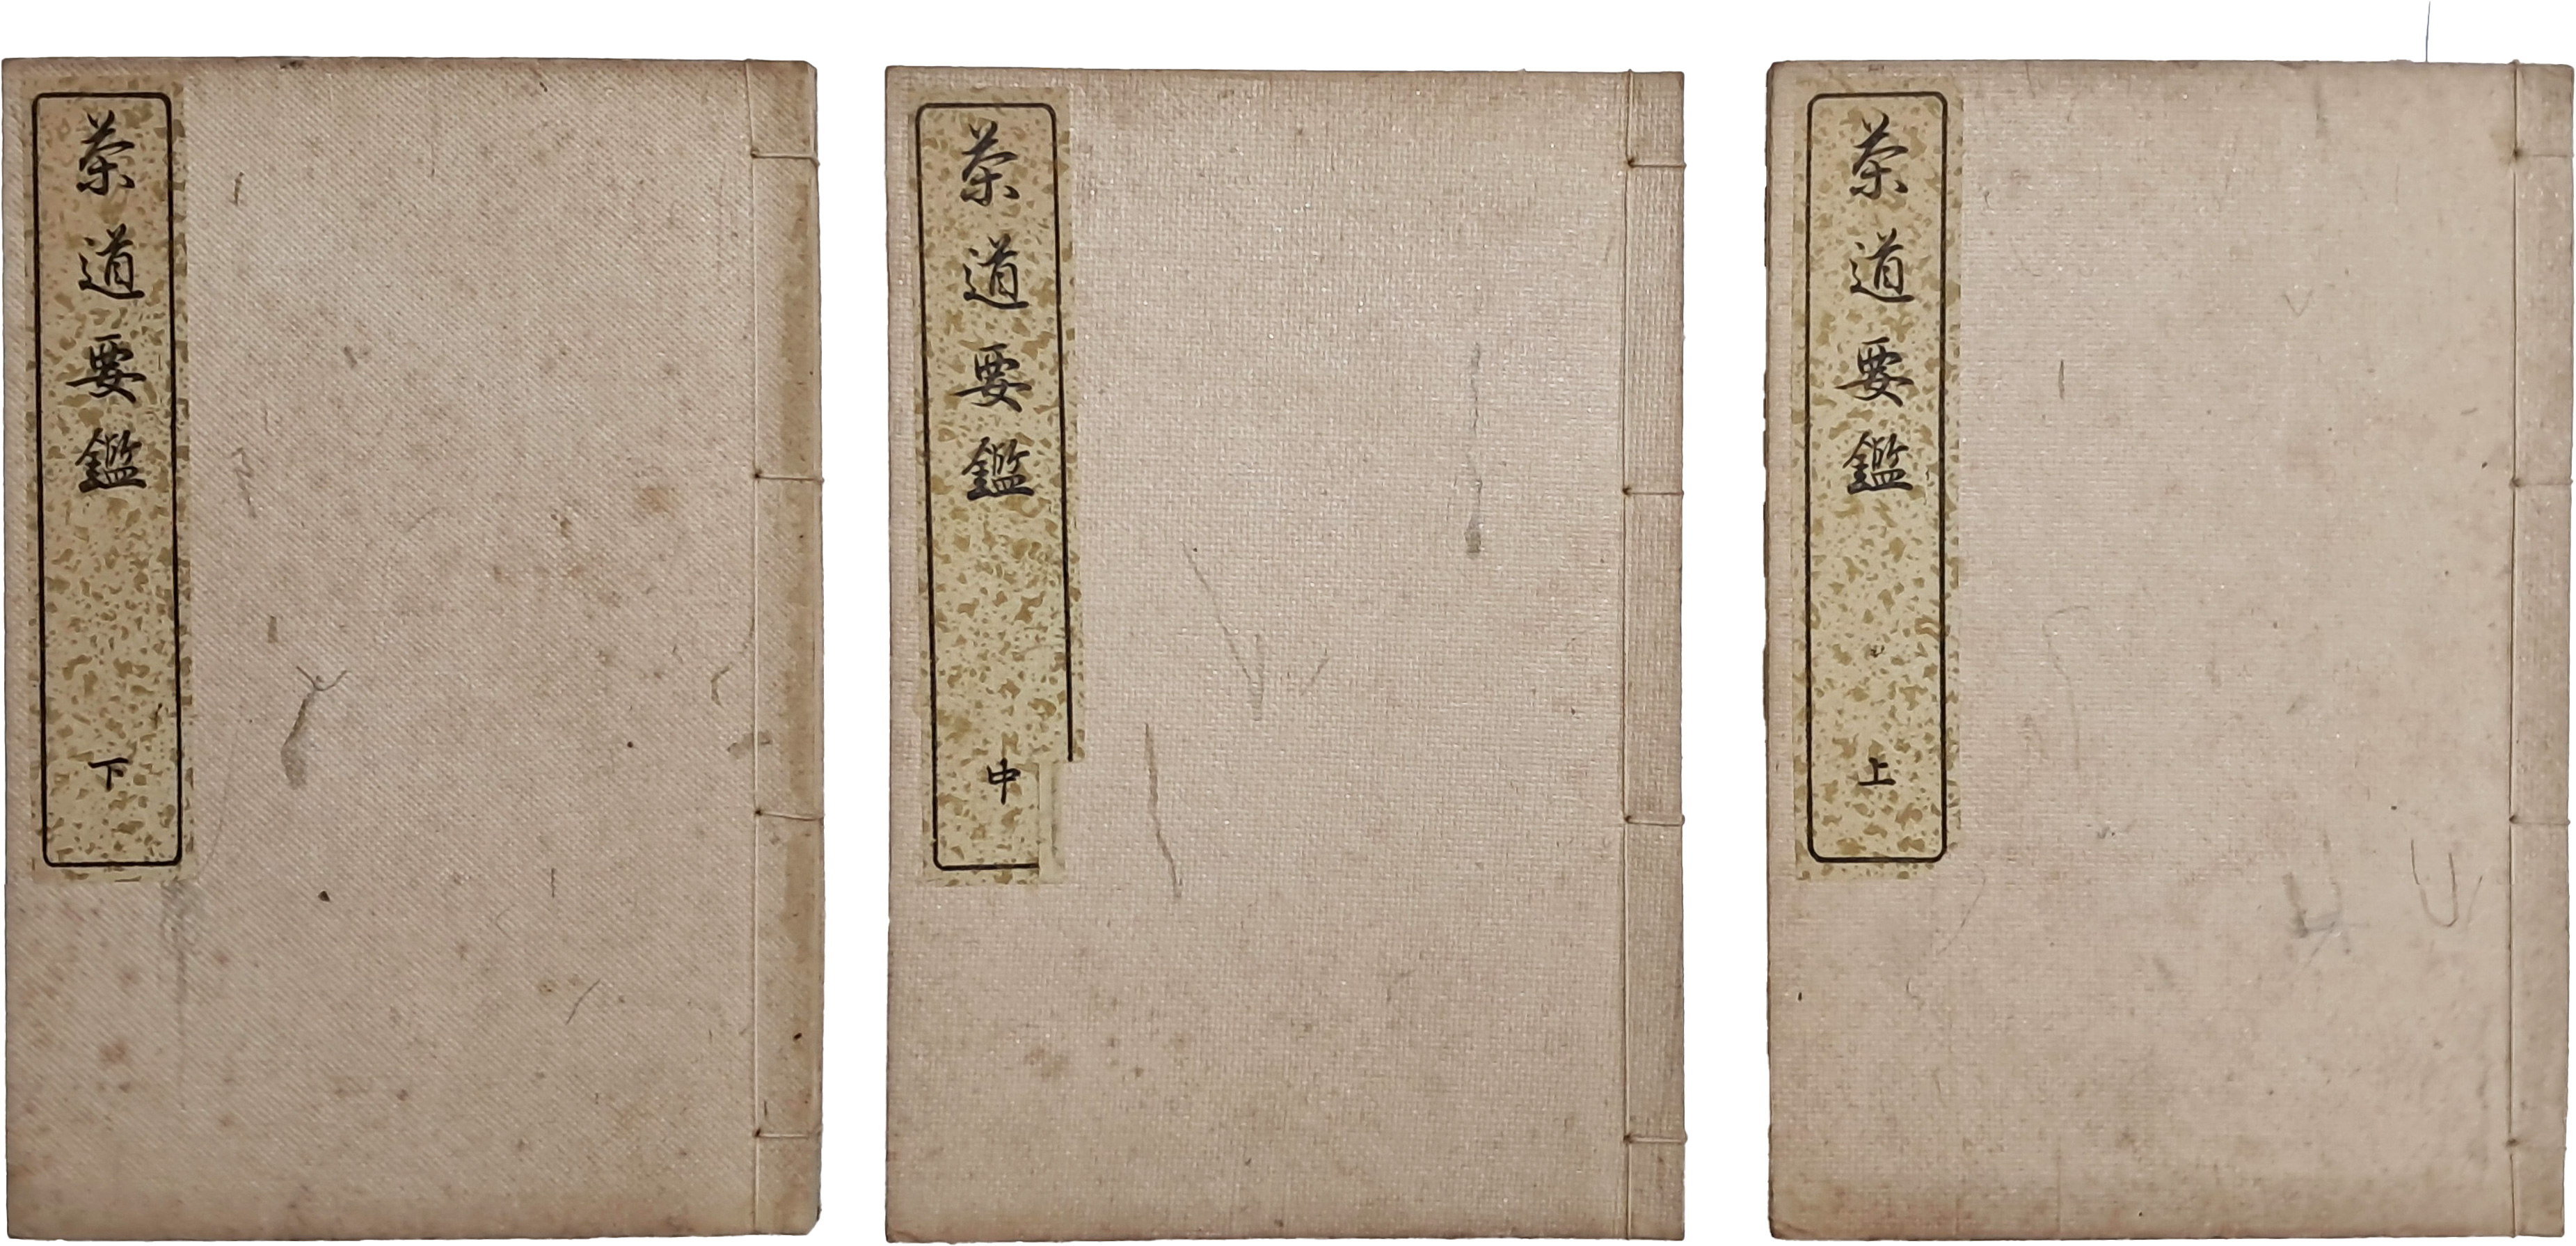 茶道要鑑
上
茶道要鑑
中
茶道要鑑
下